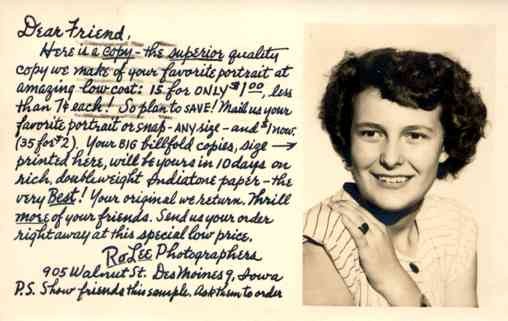 Dear Friend,
Here is a copy - the superior quality
copy we make of your favorite portrait at
amazing low cost: 15 for ONLY $1.00, less
than 7¢ each! So plan to SAVE! Mail us your
favorite portrait or snap - ANY size - and $1 now,
(35 for $2). Your BIG billfold copies, size →
printed here, will be yours in 10 days on
rich, doubleweight Indiatone paper - the
very Best! Your original we return. Thrill
more of your friends. Send us your order
right away at this special low price.
RoLee Photographers
905 Walnut St. Des Moines 9, Iowa
P.S. Show friends this sample. Ask them to order